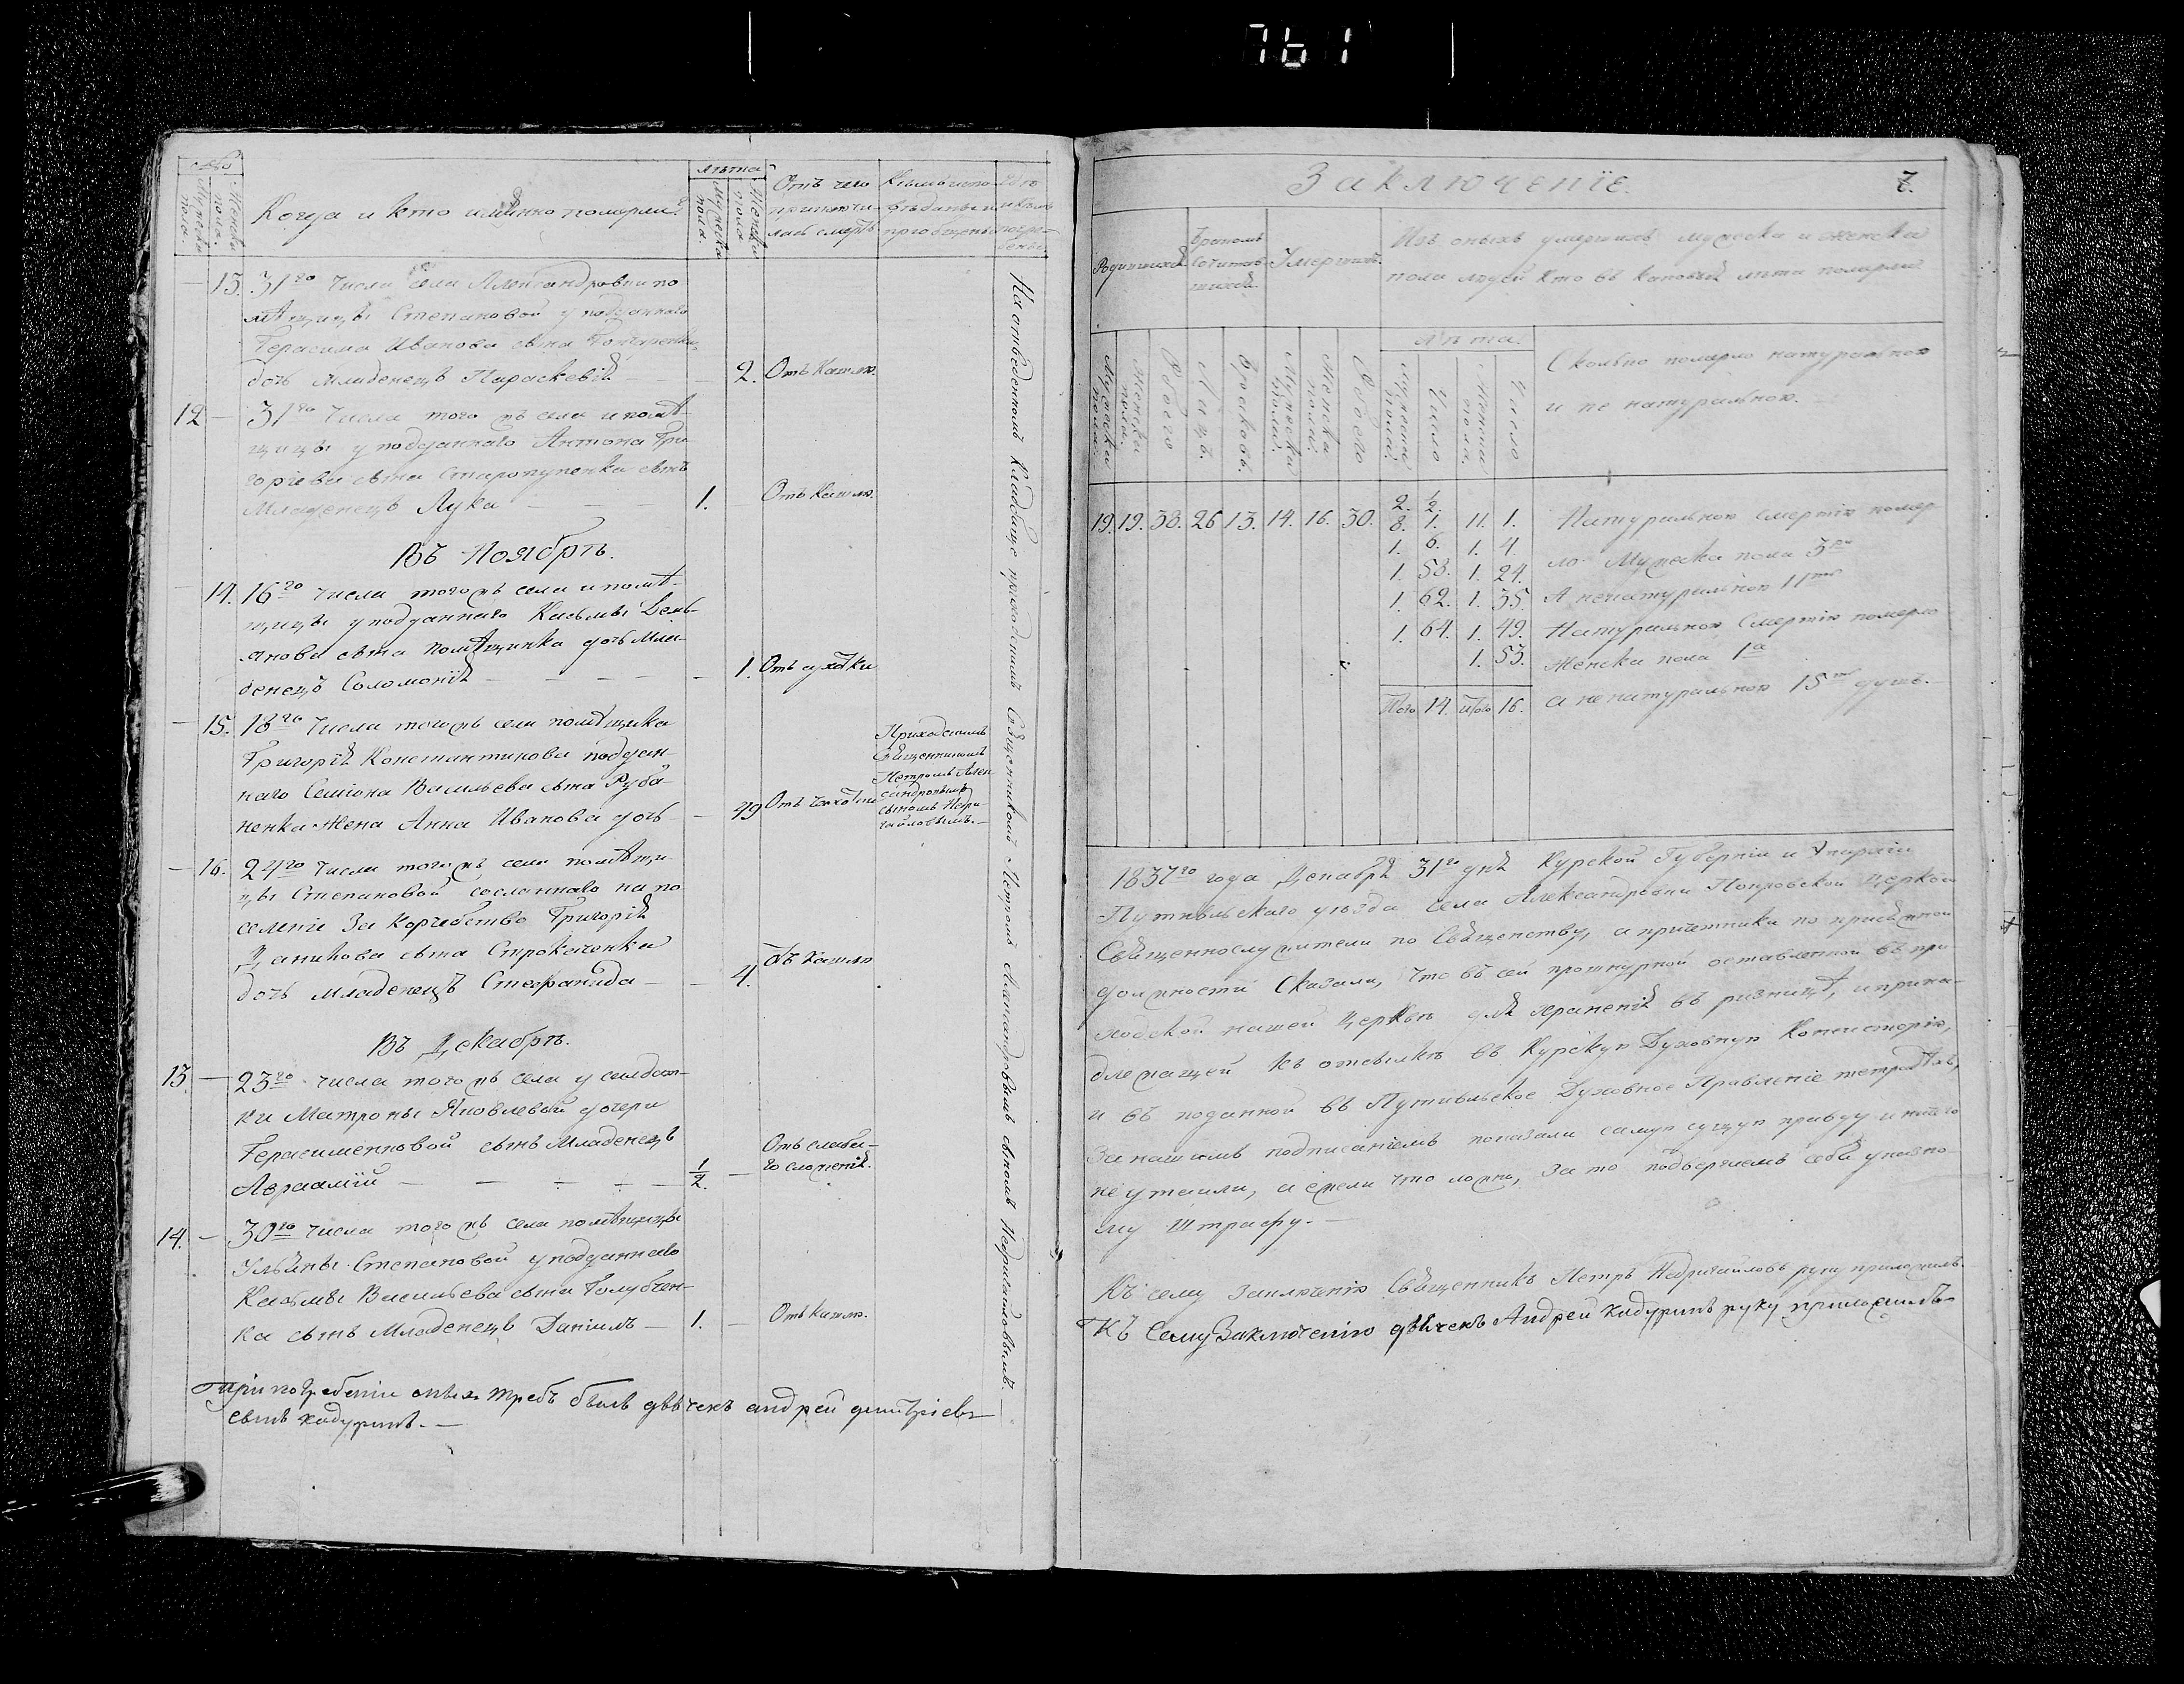 761
Мужеска пола.
Женска пола.
Когда и кто имянно померли?
лѣта
Мужеска пола.
Женска пола
Отъ чего приключилась смерть
Кѣмъ исповѣданы и пріобщены
Гдѣ и кѣмъ погребены
13. 31го числа села Александровки по
мѣщицы Степановой у подданнаго
Герасима Иванова сына Гончаренка
дочь младенецъ Параскевія — 2. Отъ кашлю.
12 — 31го числа того жъ села и помѣ-
щицы у подданнаго Антона Гри
горіева сына Старопупенка сынъ
Младенецъ Лука — — — 1. Отъ кашлю.
Въ Ноябрѣ.
— 14. 16го числа того жъ села и помѣ-
щицы у подданнаго Касьмы Демь-
янова сына дочь Мла-
денецъ Соломонія — — — — 1. Отъ сухотки
— 15. 18го числа того жъ села помѣщика
Григорія Константинова поддан-
наго Семіона Васильева сына Руба
ненка жена Анна Иванова дочь — 49 Отъ чахотки
Приходскимъ
Священникомъ
Петромъ Алек
сандровымъ
сыномъ Недри-
гайловымъ.—
— 16. 24го числа того жъ села помѣщи-
цы Степановой сосланнаго на по
селеніе за корчебство Григорія
Данилова сына Строкаченка
дочь младенецъ Стефанида — — 4. Отъ кашлю
Въ Декабрѣ.
13. — 23го числа того жъ села у солдат-
ки Матроны Яковлевой дочери
Герасименковой сынъ Младенецъ
Авраамій — — — — — 1/2. — Отъ слаба-
го сложенія.
14. — 30го числа того жъ села помѣщицы
Ульяны Степановой у подданнаго
Касьмы Васильева сына Голубчен-
ка сынъ Младенецъ Даніилъ — 1. — Отъ кашлю.
На отведенномъ кладбище приходскимъ Священникомъ Петромъ Александровымъ сыномъ Недригайловымъ.
При погребеніи оныхъ требъ былъ дьячекъ андрей димитріевъ
сынъ кадуринъ.—
Заключеніе.
7.
Родившихся
Бракомъ Сочитавшихся
Умершихъ
Изъ оныхъ умершихъ мужеска и женска
пола людей кто въ каковыя лѣта померли
Мужеска пола.
Женска пола.
Обоего
Лицъ.
Браковъ.
Мужеска пола.
Женска пола.
Обоего
Лѣта.
Мужеска пола.
Число
Женска пола.
Число
Сколько померло натуральною
и не натуральною.
19. 19. 38. 26 13. 14. 16. 30.
2. 1/2.
8. 1. 11. 1.
1. 6. 1. 4.
1. 53. 1. 24.
1. 62. 1. 35.
1. 64. 1. 49.
1. 53.
Итого 14. Итого 16.
Натуральною смертію помер
ло Мужеска пола 3ри
А ненатуральною 11ть
Натуральною Смертію померло
Женска пола 1а
а не натуральною 15ть душъ.
1837го года Декабря 31го дня Курской Губерніи и Эпархіи
Путивльскаго уѣзда села Александровки Покровской церкви
Священнослужители по Священству, а причетники по присяжной
должности сказали, что въ сей прошнурной оставленной въ при
ходской нашей Церквѣ для храненія въ ризницѣ, и прина-
длежащей къ отсылкѣ въ Курскую Духовную Консисторію,
и въ поданной въ Путивльское Духовное Правленіе тетратяхъ,
за нашимъ подписаніемъ показали самую сущую правду и ничего
не утаили, а ежели что ложно, за то подвергаемъ себя указно
му Штрафу.—
Къ сему Заключенію Священникъ Петръ Недригайловъ руку приложилъ
Къ Сему Заключенію дьячекъ Андрей Кадуринъ руку приложилъ